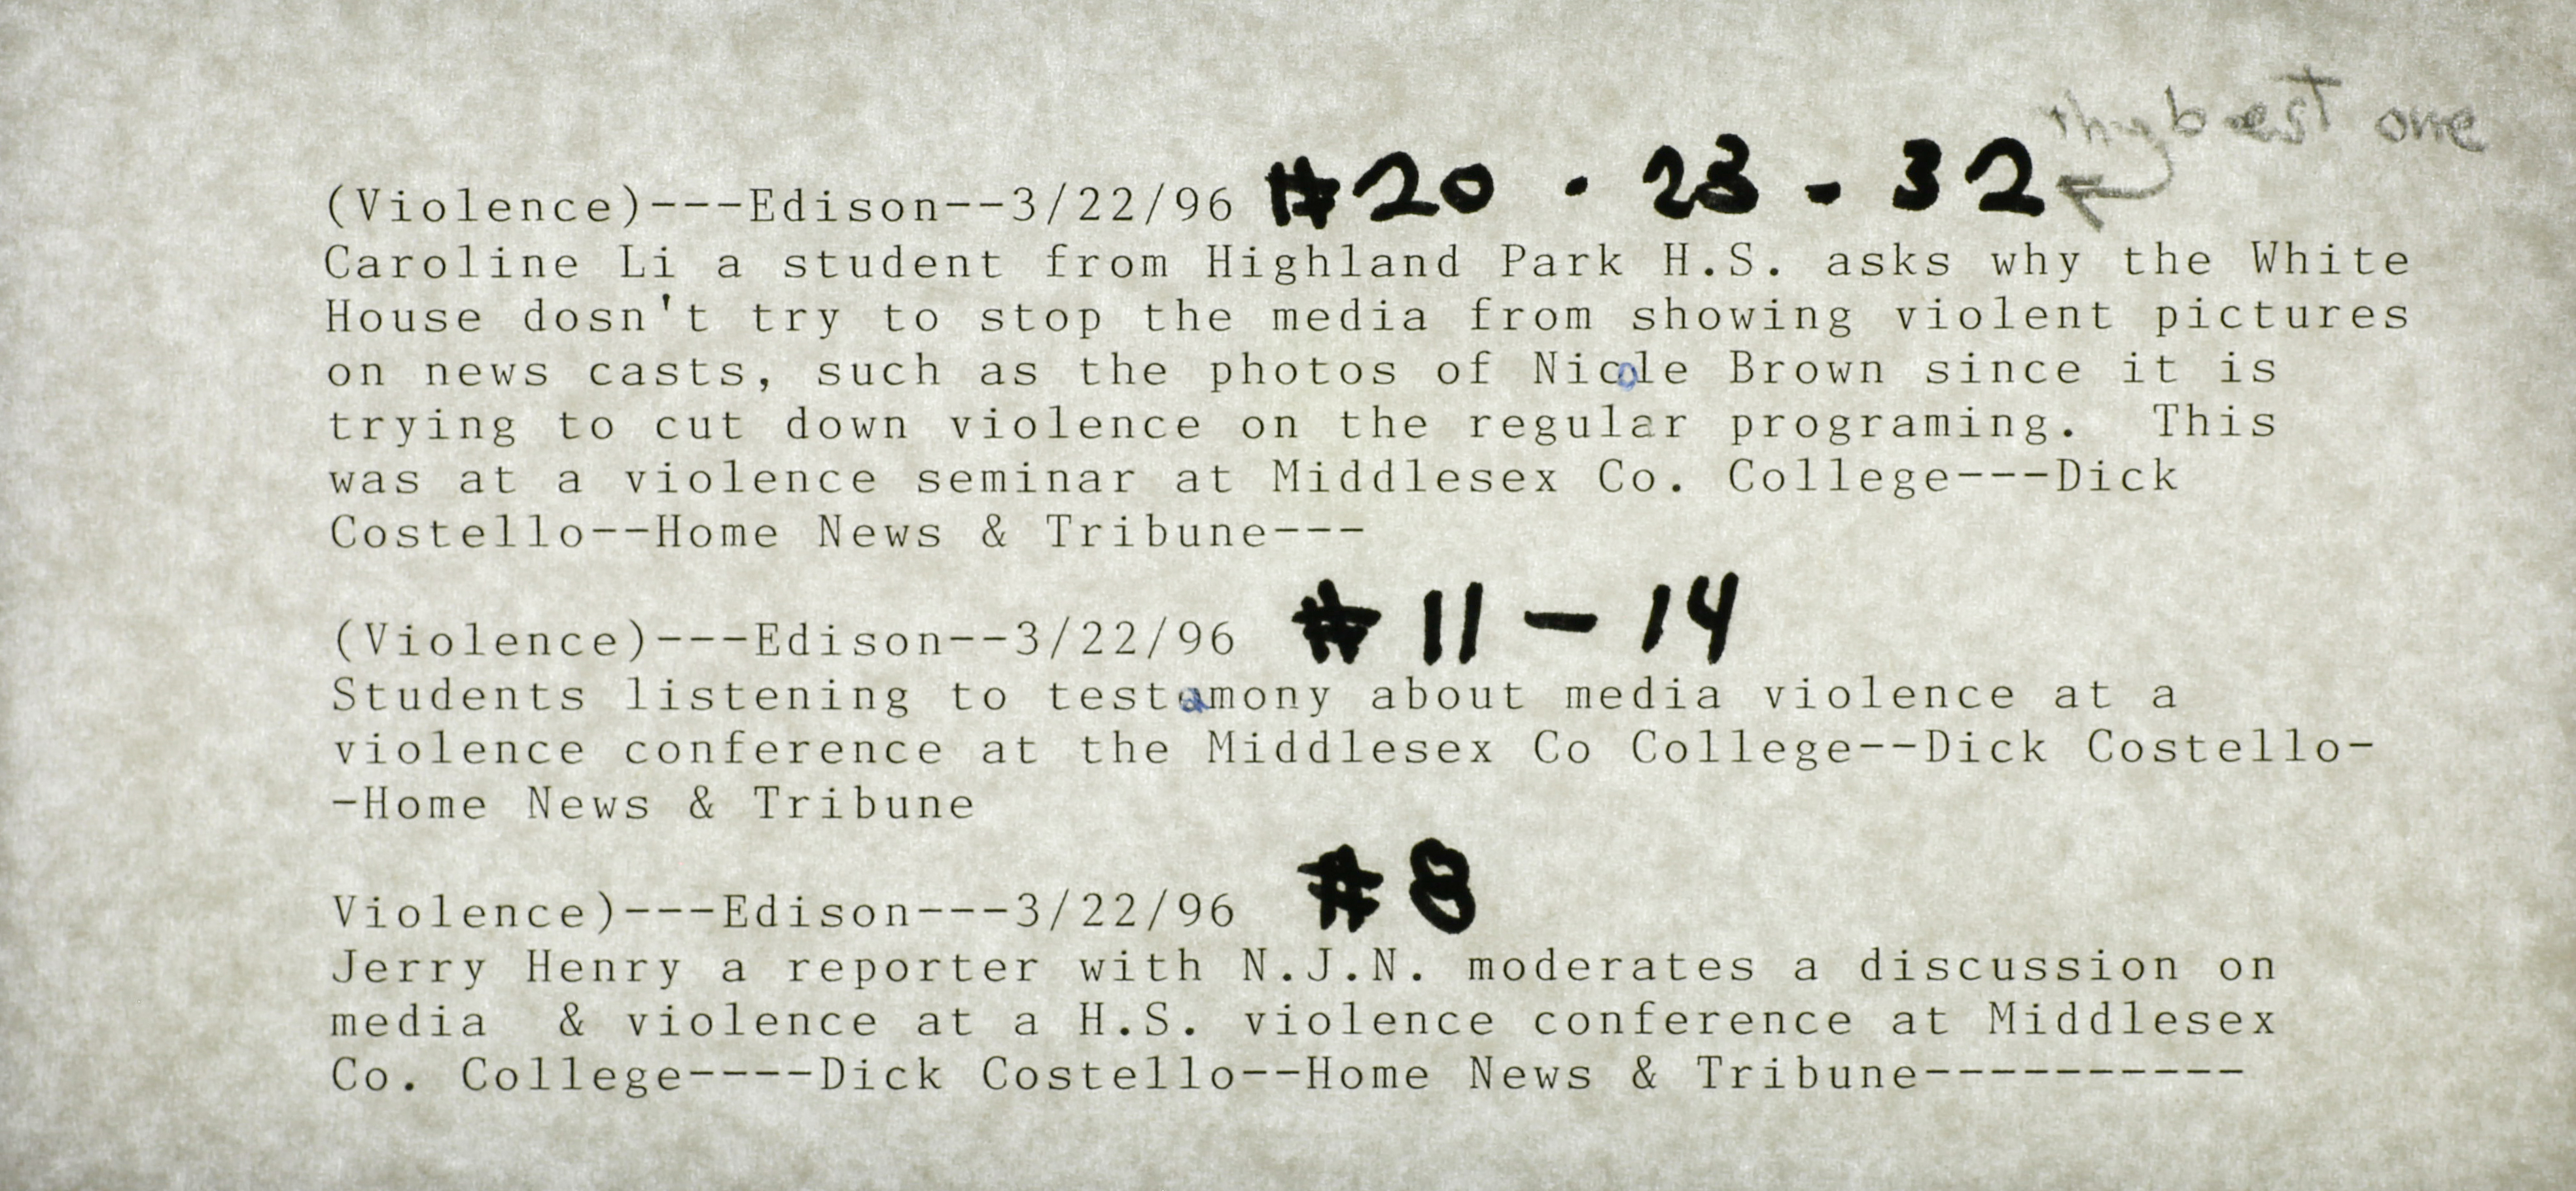 best one
(Violence)---Edison--3/22/96 #20 - 23 - 32
Caroline Li a student from Highland Park H.S. asks why the White
House dosn't try to stop the media from showing violent pictures
on news casts, such as the photos of Nicole Brown since it is
trying to cut down violence on the regular programing.  This
was at a violence seminar at Middlesex Co. College---Dick
Costello--Home News & Tribune---
(Violence)---Edison--3/22/96 # 11 - 14
Students listening to testamony about media violence at a
violence conference at the Middlesex Co College--Dick Costello-
-Home News & Tribune
Violence)---Edison---3/22/96 #8
Jerry Henry a reporter with N.J.N. moderates a discussion on
media  & violence at a H.S. violence conference at Middlesex
Co. College----Dick Costello--Home News & Tribune----------